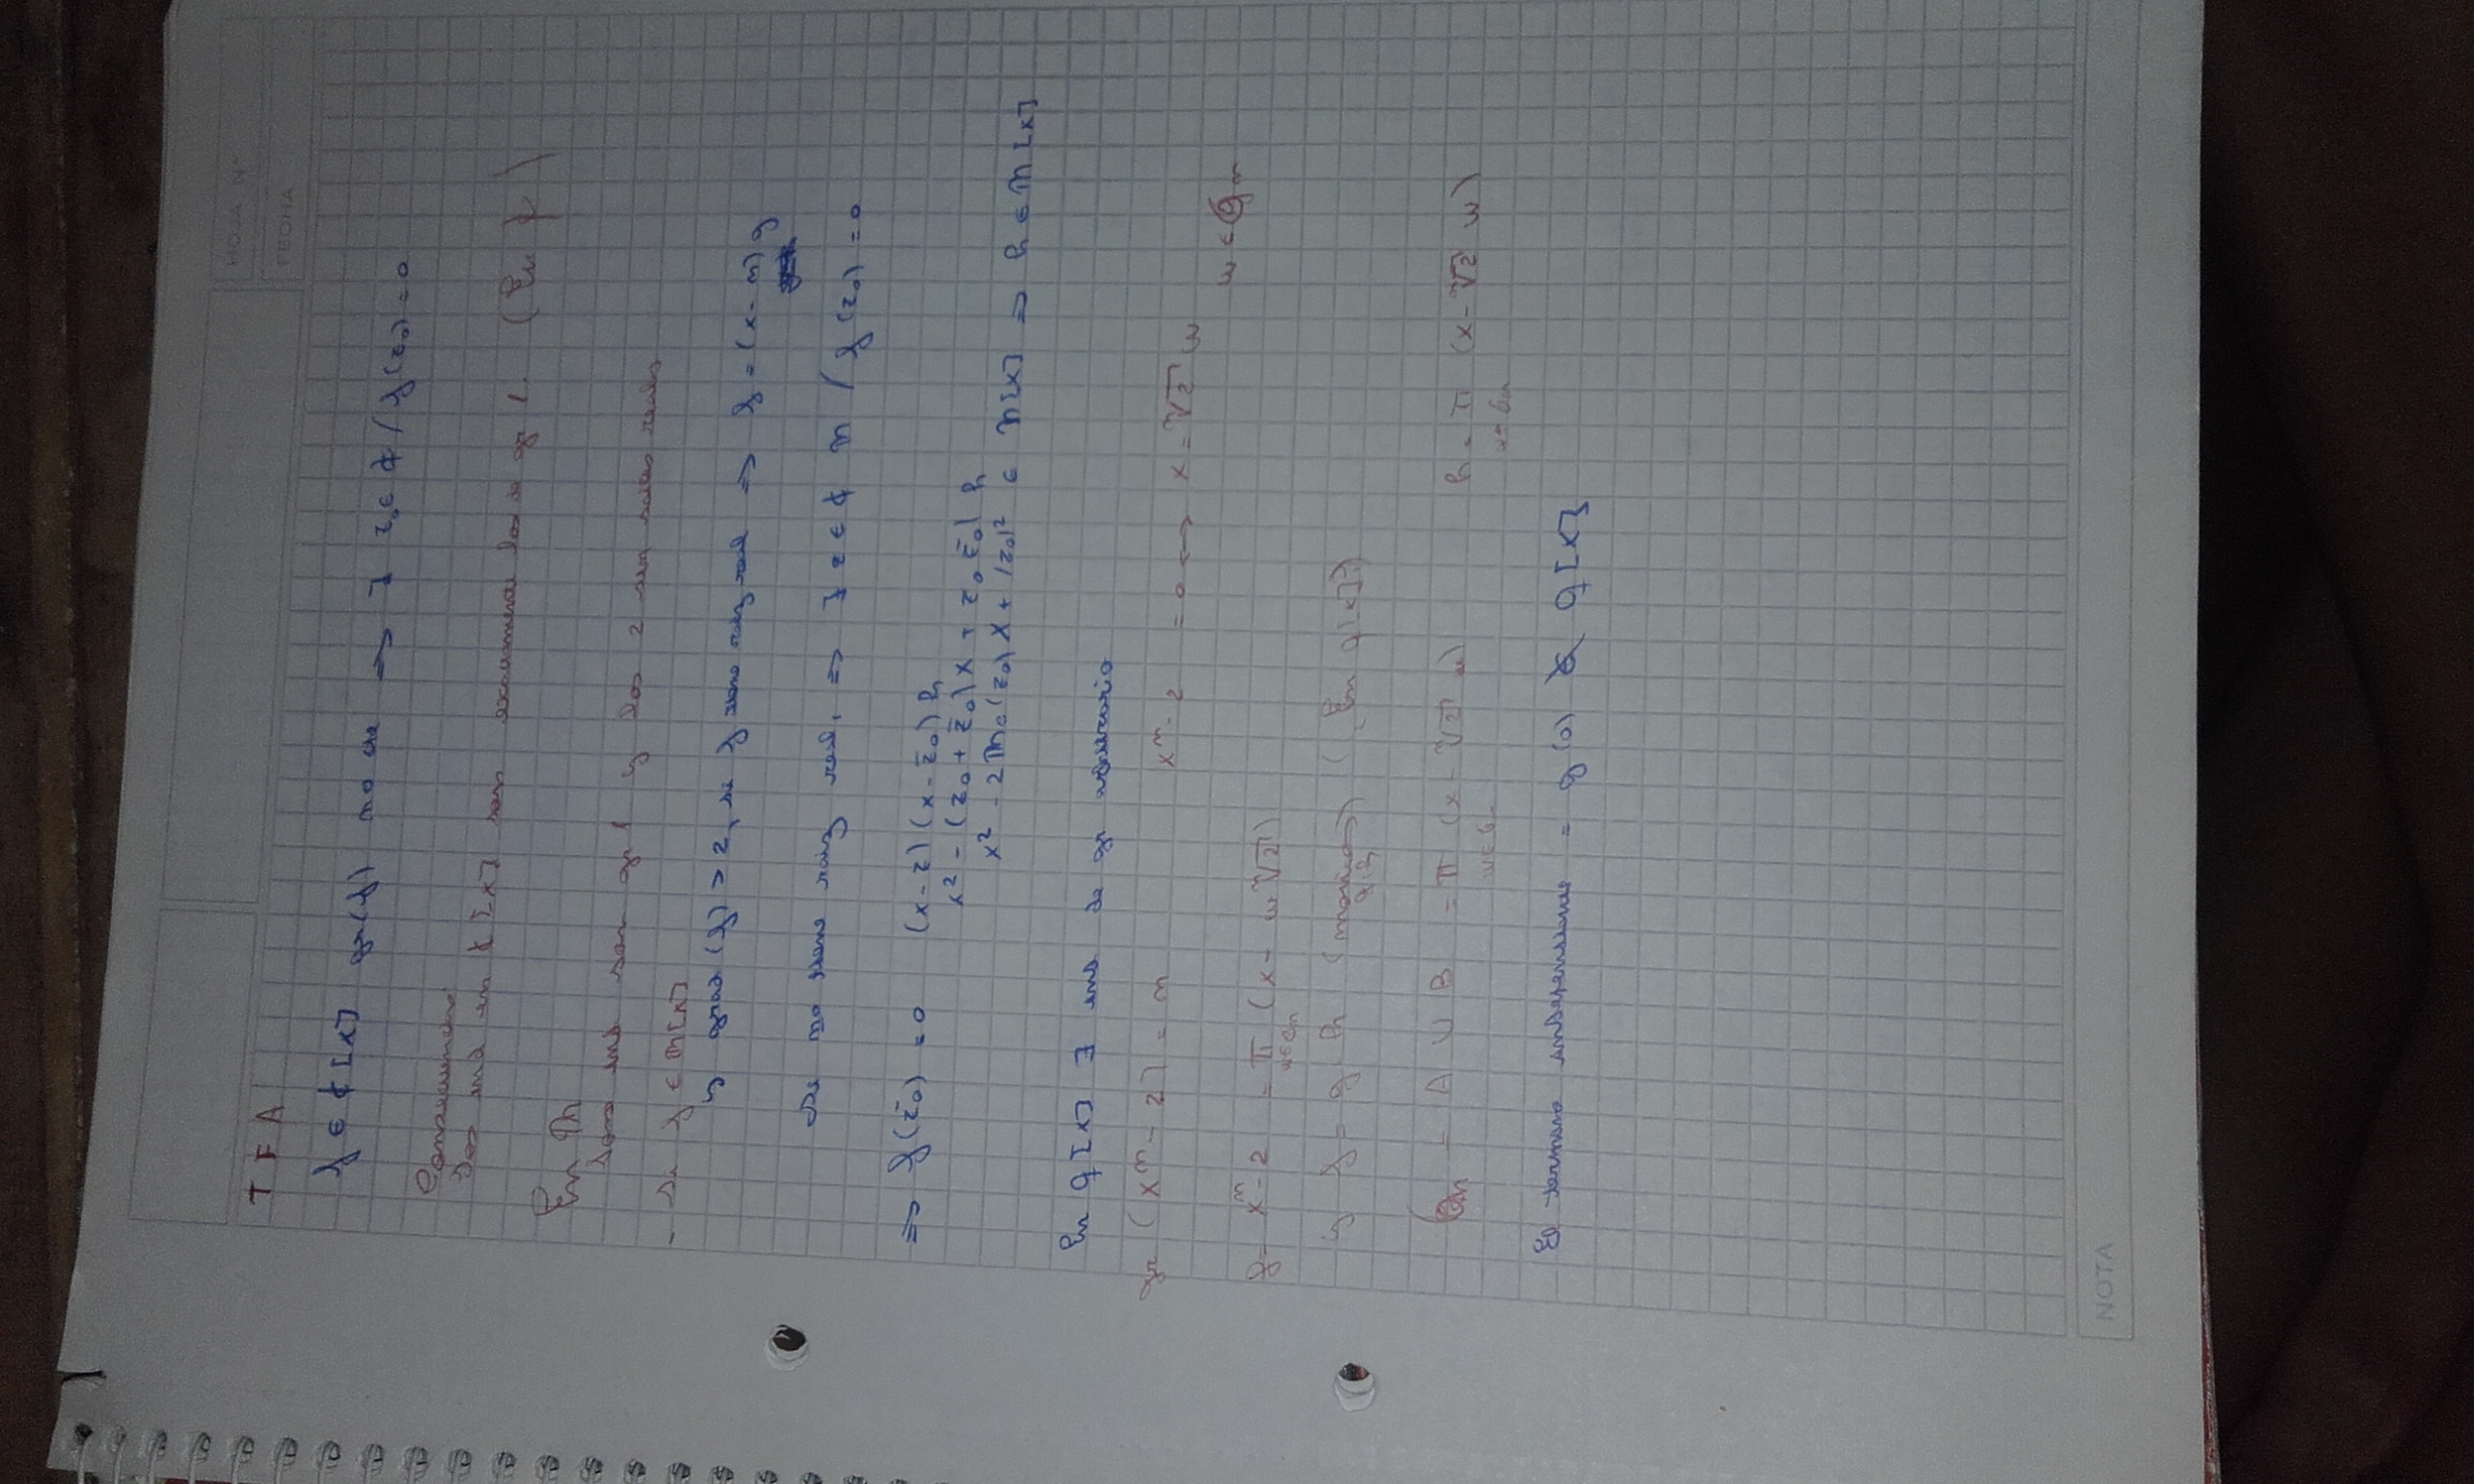 HOJA N°
FECHA
TFA
f ∈ ℂ[x] gr(f) no cte ⇒ ∃ z₀ ∈ ℂ / f(z₀) = 0
Consecuencias
Los irred en ℂ[x] son exactamente los de gr 1. (En ℂ)
En ℝ
Son irred son gr 1 y los 2 sin raíces reales
- Si f ∈ ℝ[x]
y grad(f) > 2, si f tiene raíz real ⇒ f = (x - r) g
Si no tiene raíz real, ⇒ ∃ z ∈ ℂ ℝ / f(z₀) = 0
⇒ f(z̄₀) = 0 (x - z)(x - z̄₀) h
x² - (z₀ + z̄₀)x + z₀ z̄₀) h
x² - 2Re(z₀)x + |z₀|² ∈ ℝ[x] ⇒ h ∈ ℝ[x]
En Q[x] ∃ irred de gr arbitrario
gr (xⁿ - 2) = n xⁿ - 2 = 0 ↔ x = ⁿ√2 w
w ∈ Gn
f = xⁿ - 2 = π (x - w ⁿ√2)
w∈Gn
y f = g h (monicos) (¿En Q[x]?)
g, h
Gn = A ∪ B = π (x - ⁿ√2 w) h = π (x - ⁿ√2 w)
w∈Gn w∈Gn
El termino independiente = g(0) ∉ Q[x]
NOTA